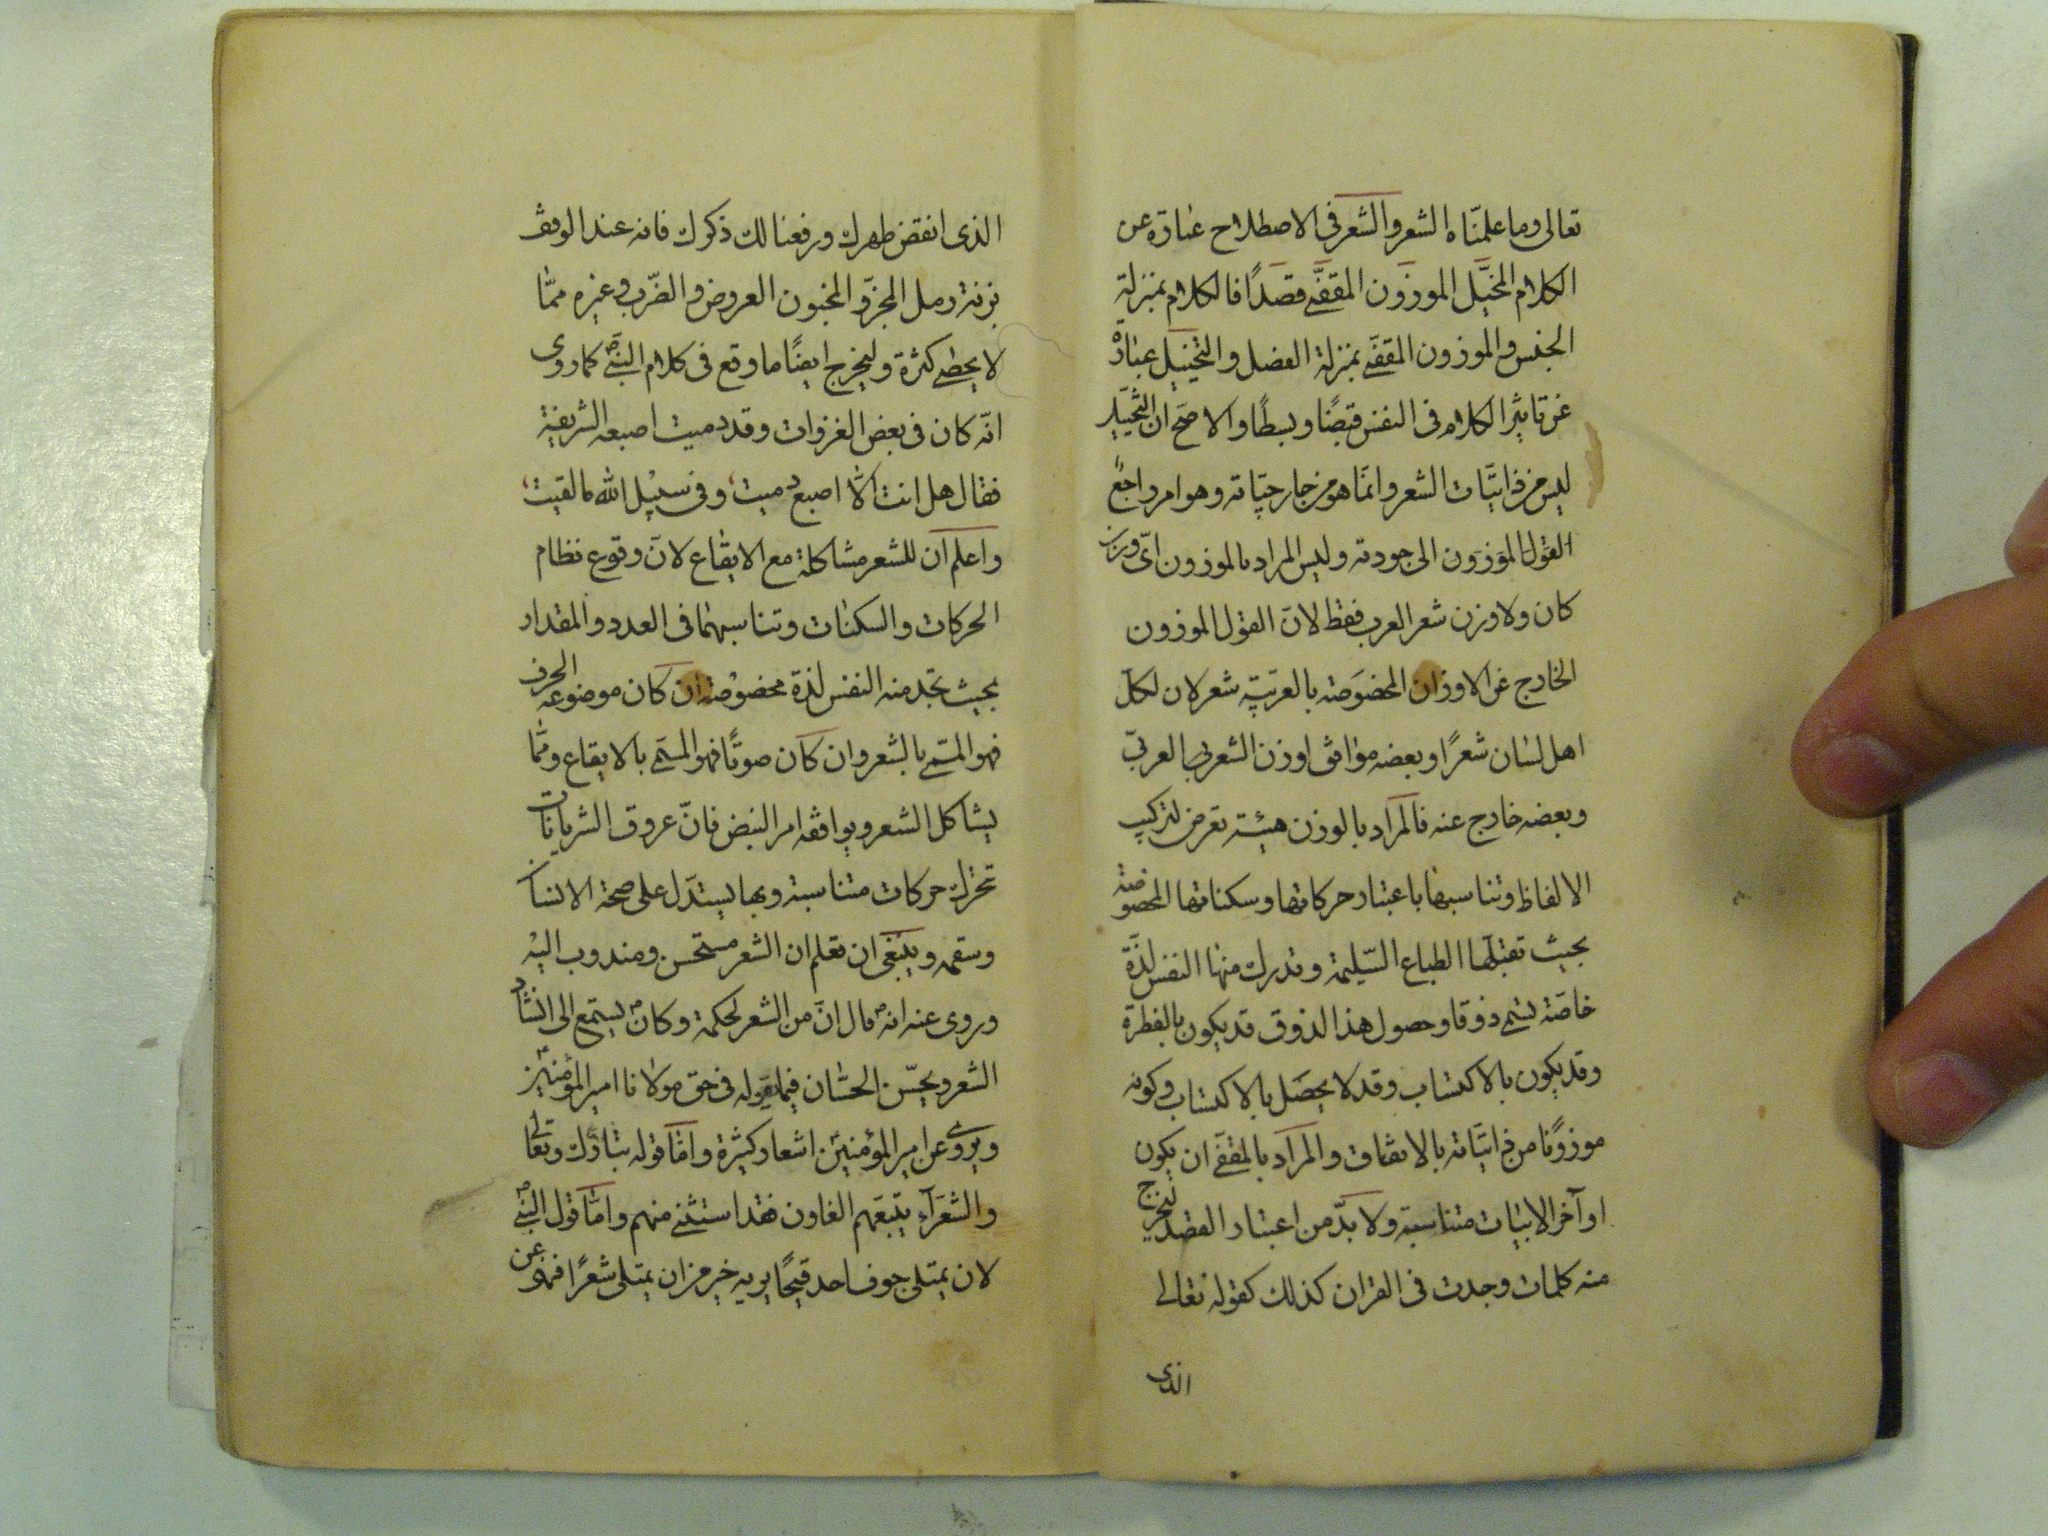 تعالى وما علمناه الشعر والشعر فى الاصطلاح عبارة عن
الكلام المخيَّل الموزون المقفّى قصدًا فالكلام بمنزلة
الجنس والموزون المقفى بمنزلة الفصل والتخييل عبارة
عن تاثير الكلام فى النفس قبضًا وبسطًا والاصح ان التخييل
ليس من ذاتيّات الشعر وانما هو من خارجيّاته وهو امر راجعٌ
القول الموزون الى جودته وليس المراد بالموزون اىّ وزن
كان ولا وزن شعر العرب فقط لانّ القول الموزون
الخارج عن الاوزان المخصوصة بالعربيّة شعر لان لكلّ
اهل لسان شعرًا وبعضه موافق اوزن الشعر العربىّ
وبعضه خارج عنه فالمراد بالوزن هيئة تعرض لتركيب
الالفاظ وتناسبها باعتبار حركاتها وسكناتها المخصوصة
بحيث تقبلها الطباع السّليمة وتدرك منها النفس لذّة
خاصّة تسمى ذوقا وحصول هذا الذوق قد يكون بالفطرة
وقد يكون بالاكتساب وقد لا يحصل بالاكتساب وكونه
موزونًا من ذاتيّاته بالاتفاق والمراد بالمقفّى ان يكون
اوآخر الابيات متناسبة ولا بدّ من اعتبار القصد ليخرج
منه كلمات وجدت فى القران كذلك كقوله تعالى
الذى
الذى انقض ظهرك ورفعنا لك ذكرك فانه عند الوقف
بزنة رمل المجزّو المخبون العروض والضّرب وغيره ممّا
لا يحصى كثرة وليخرج ايضًا ما وقع فى كلام النبىّ ص كما روى
انّه كان فى بعض الغزوات وقد دميت اصبعه الشريفة
فقال هل انت الّا اصبع دميت، وفى سبيل الله ما لقيت،
واعلم ان للشعر مشاكلة مع الايقاع لانّ وقوع نظام
الحركات والسكنات وتناسبهما فى العدد والمقدار
بحيث تجد منه النفس لذة مخصوصة ان كان موضوعه الحرف
فهو المسمّى بالشعر وان كان صوتًا فهو المسمّى بالايقاع وممّا
يشاكل الشعر ويوافقه امر النبض فانّ عروق الشريانات
تحرك حركات متناسبة وبها يستدل على صحة الانسان
وسقمه وينبغى ان تعلم ان الشعر مستحسن ومندوب اليه
وروى عنه انه ص قال انّ من الشعر لحكمة وكان ص يستمع الى انشاد
الشعر ويحسّن الحسّان فيما يقوله فى حق مولانا امير المؤمنين ع
ويروى عن امير المؤمنين ع اشعار كثيرة وامّا قوله تبارك وتعالى
والشعرآء يتبعهم الغاون فقد استثنى منهم وامّا قول النبىّ ص
لان يمتلى جوف احد قيحًا يريه خير من ان يمتلى شعرًا فهو عن